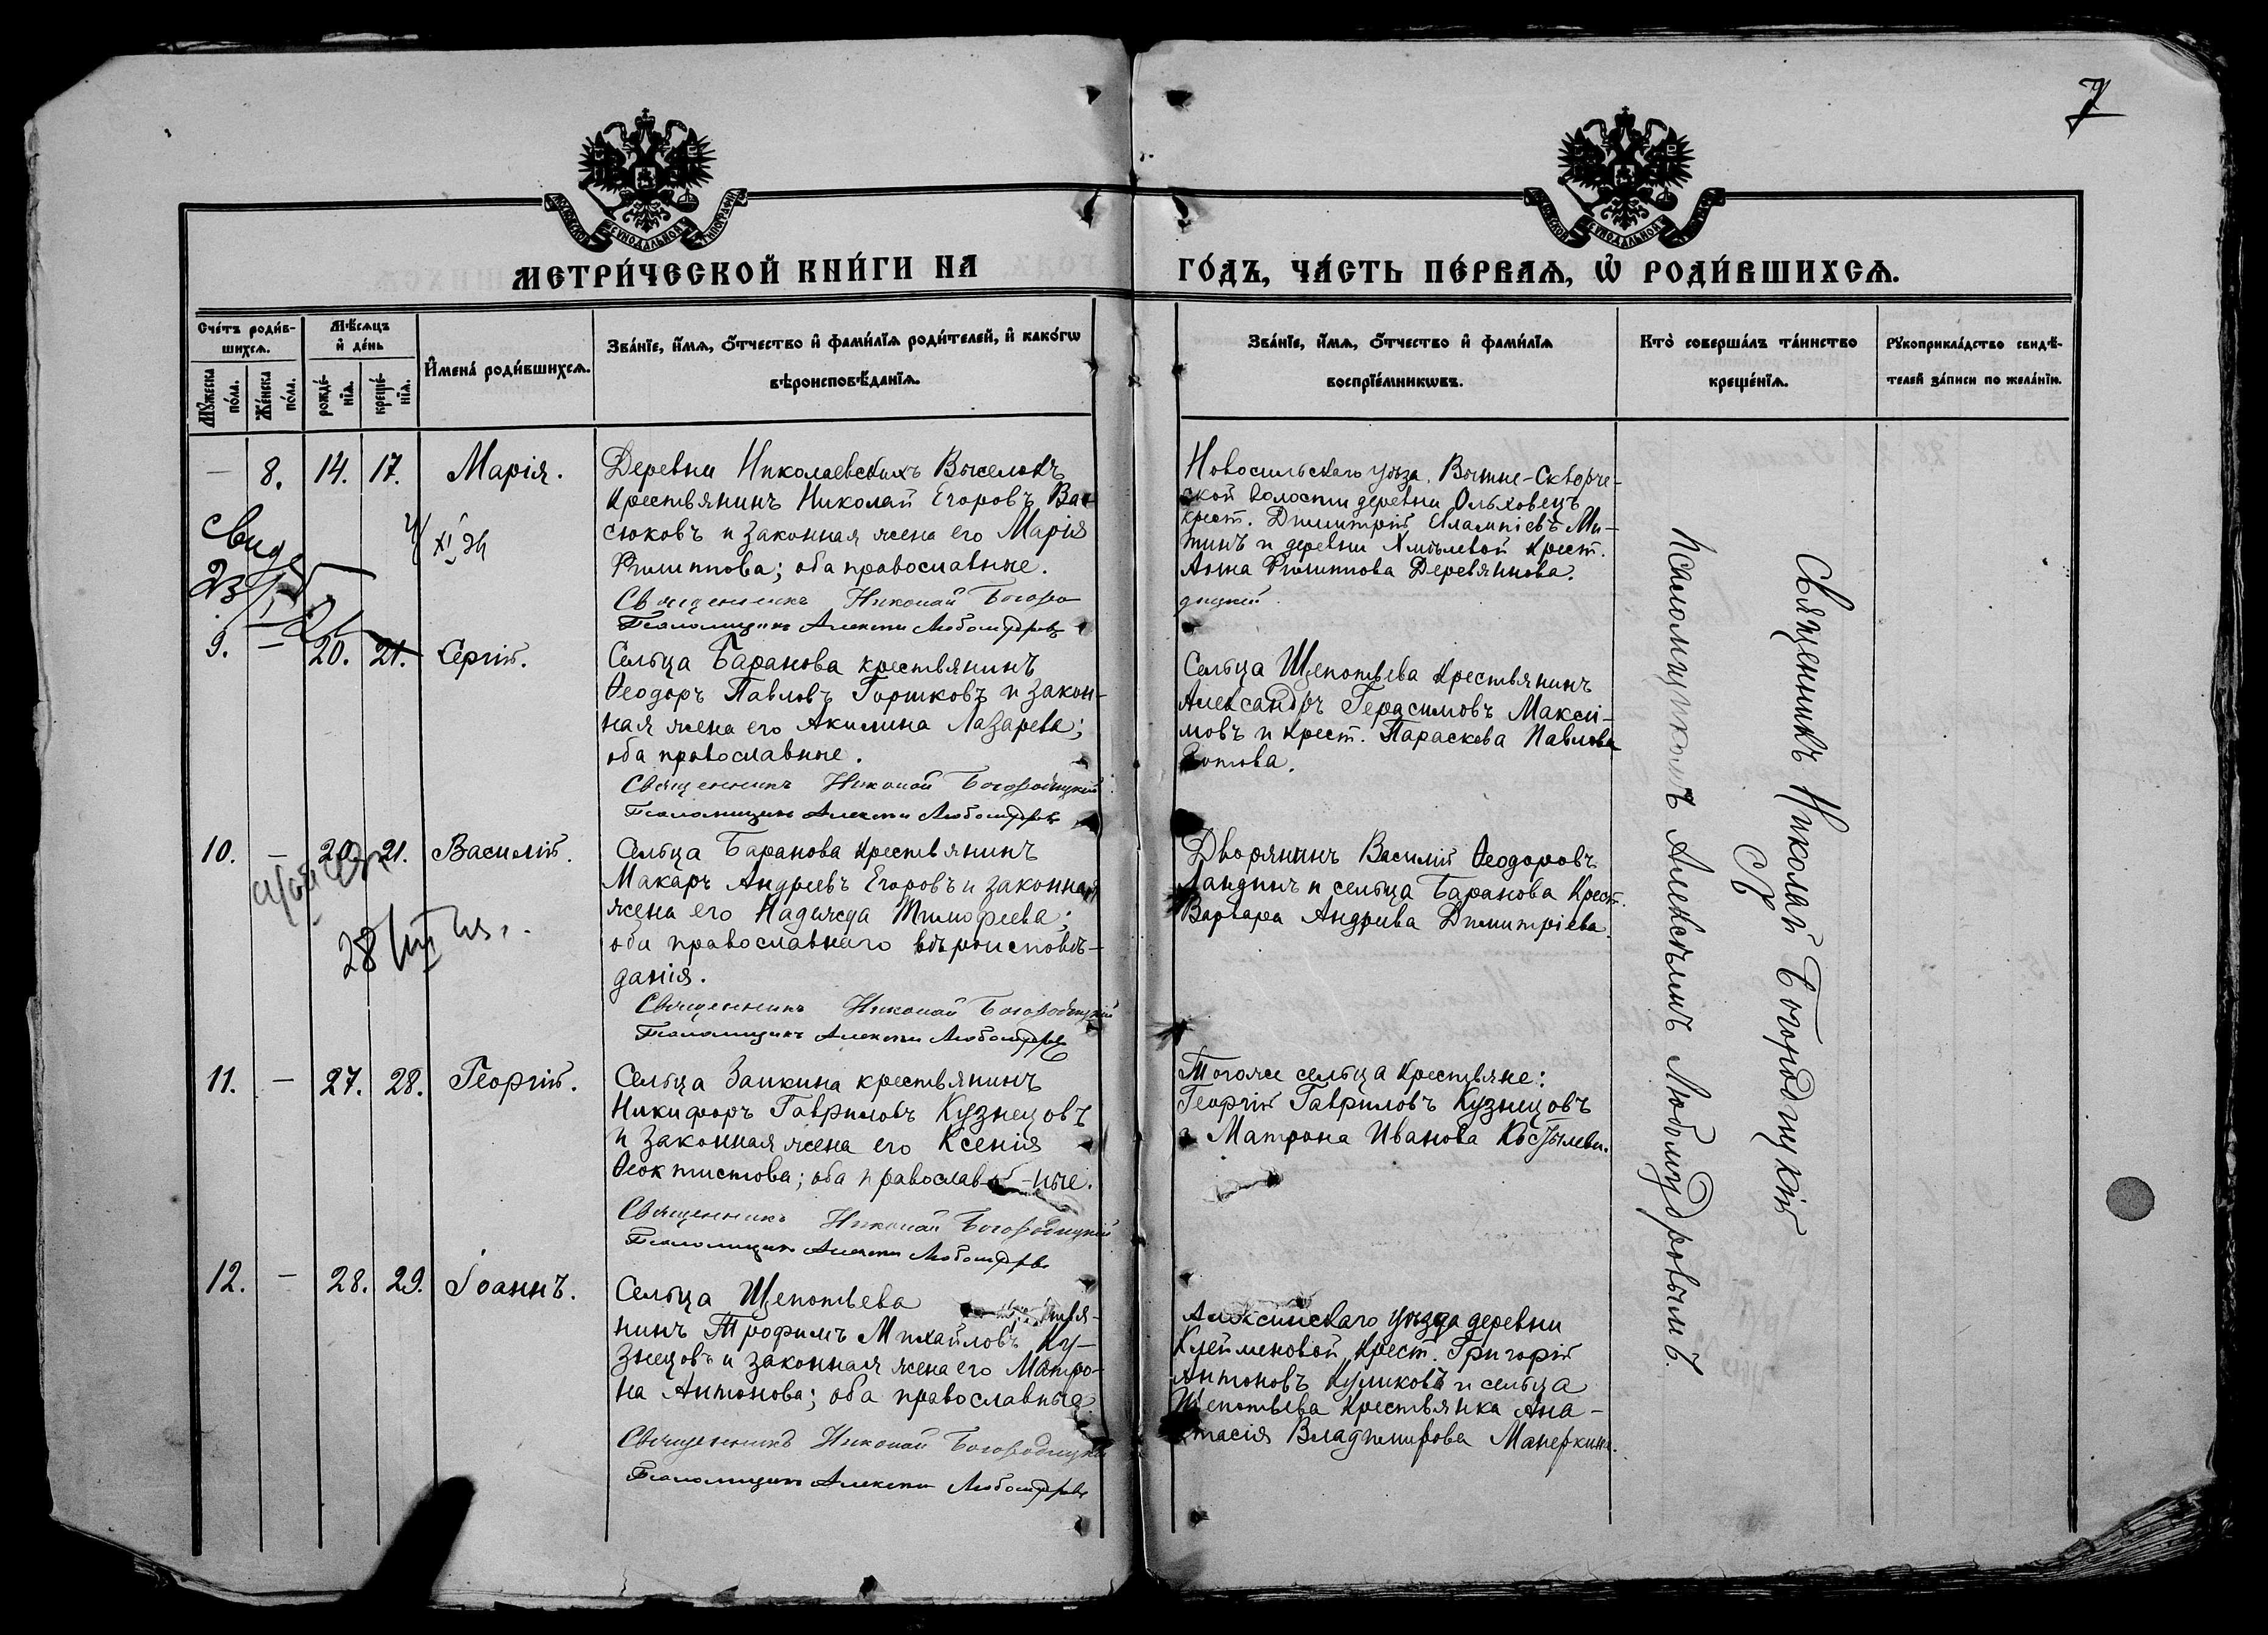 7
МЕТРИ́ЧЕСКОЙ КНИ́ГИ НА
ГО́ДЪ, ЧА́СТЬ ПЕ́РВАѦ, Ѡ РОДИ́ВШИХСѦ.
Сче́тъ роди́в-
шихсѧ.
Мѣ́сѧцъ
и҆ де́нь
И҆мена̀ роди́вшихсѧ.
Зва́нїе, и҆́мѧ, о҆́тчество и҆ фами́лїѧ роди́телей, и҆ како́гѡ
вѣроисповѣ́данїѧ.
Мꙋ́жеска
по́ла.
Же́нска
по́ла.
рожде́-
нїѧ.
креще́-
нїѧ.
Зва́нїе, и҆́мѧ, о҆́тчество и҆ фами́лїѧ
воспрїе́мникѡвъ.
Кто̀ соверша́лъ та́инство
креще́нїѧ.
Рꙋкоприкла́дство свидѣ́-
телей за́писи по жела́нїю.
— 8. 14. 17. Марія.
Деревни Николаевскихъ Выселокъ
крестьянинъ Николай Егоровъ Ва-
сюковъ и законная жена его Марія
Филиппова; оба православные.
Священникъ Николай Богоро-
дицкій
Псаломщикъ Алексѣй Любомудровъ
Новосильскаго уѣзда, Вышне-Скворче-
ской волости деревни Ольховецъ
крест. Димитрій Евлампіевъ Ми-
тинъ и деревни Хмѣлевой крест.
Анна Филиппова Деревяннова.
9. — 20. 21. Сергій.
Сельца Баранова крестьянинъ
Ѳеодоръ Павловъ Горшковъ и закон-
ная жена его Акилина Лазарева;
оба православные.
Священникъ Николай Богородицкій
Псаломщикъ Алексѣй Любомудровъ
Сельца Щепотьева крестьянинъ
Александръ Герасимовъ Макси-
мовъ и крест. Параскева Павлова
Зотова.
10. — 20. 21. Василій.
28/III
Сельца Баранова крестьянинъ
Макаръ Андреевъ Егоровъ и законная
жена его Надежда Тимофеева;
оба православнаго вѣроисповѣ-
данія.
Священникъ Николай Богородицкій
Псаломщикъ Алексѣй Любомудровъ
Дворянинъ Василій Ѳеодоровъ
Ландинъ и сельца Баранова крест.
Варвара Андреева Димитріева.
11. — 27. 28. Георгій.
Сельца Заикина крестьянинъ
Никифоръ Гавриловъ Кузнецовъ
и законная жена его Ксенія
Ѳеоктистова; оба православ-ные.
Священникъ Николай Богородицкій
Псаломщикъ Алексѣй Любомудровъ
Тогоже сельца крестьяне:
Георгій Гавриловъ Кузнецовъ
и Матрона Иванова Костылева.
12. — 28. 29. Іоаннъ.
Сельца Щепотьева
нинъ Трофимъ Михайловъ Ку-
знецовъ и законная жена его Матро-
на Антонова; оба православные
Священникъ Николай Богородицкій
Псаломщикъ Алексѣй Любомудровъ
Алексинскаго уѣзда деревни
Клейменовой крест. Григорій
Антоновъ Куликовъ и сельца
Щепотьева крестьянка Ана-
стасія Владимирова Манеркина.
Священникъ Николай Богородицкій
съ
псаломщикомъ Алексѣемъ Любомудровымъ.